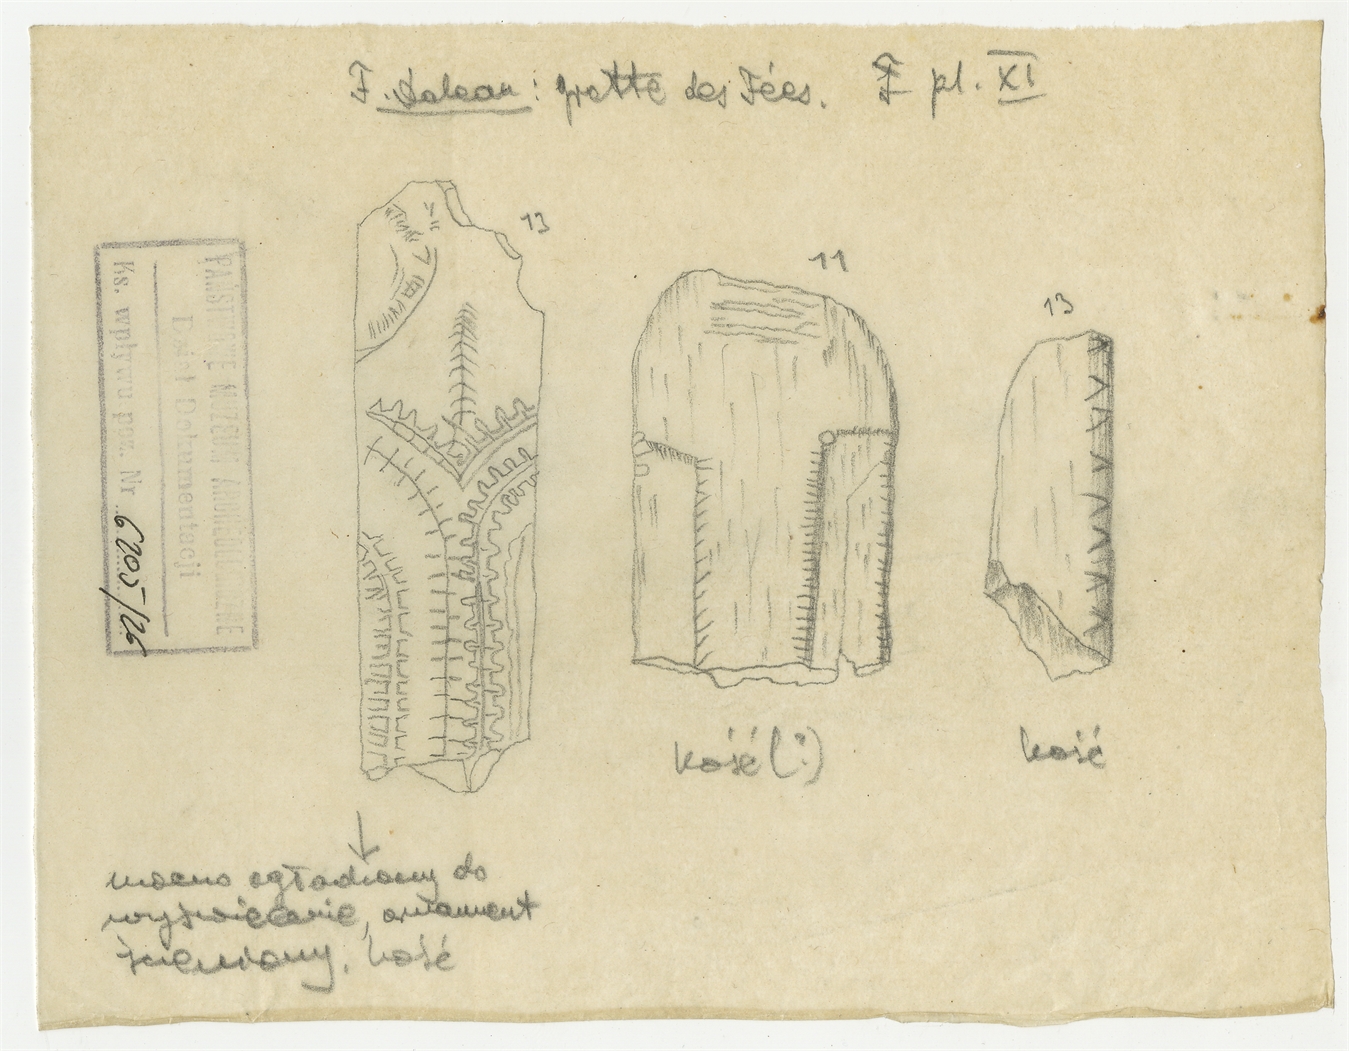 F. Daleau: grotte des Fées. F pl. XI
13
11
13
PAŃSTWOWE MUZEUM ARCHEOLOGICZNE
Dział Dokumentacji
Ks. wpływu poz. Nr 6205/26
kość (?)
kość
mocno ogładzony do
wyświecenie, ornament
kość